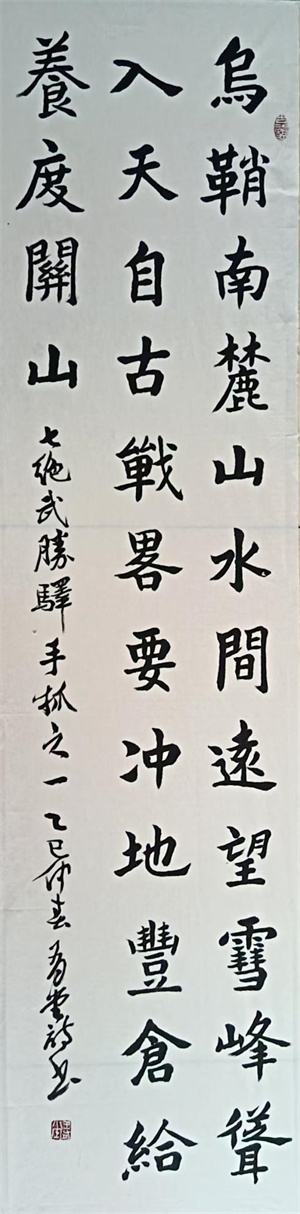 烏鞘南麓山水間遠望雪峰聳
入天自古戰畧要冲地豐倉給
養度關山
七絶武勝驛手抓之一 乙巳仲春 詩书